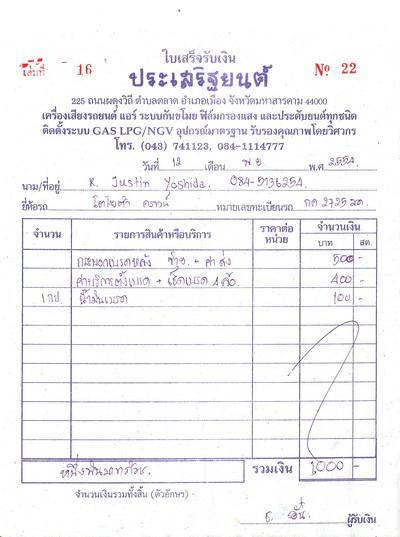 ใบเสร็จรับเงิน
เล่มที่ 16
ประเสริฐยนต์
№ 22
225 ถนนผดุงวิถี ตำบลตลาด อำเภอเมือง จังหวัดมหาสารคาม 44000
เครื่องเสียงรถยนต์ แอร์ ระบบกันขโมย ฟิล์มกรองแสง และประดับยนต์ทุกชนิด
ติดตั้งระบบ GAS LPG/NGV อุปกรณ์มาตรฐาน รับรองคุณภาพโดยวิศวกร
โทร. (043) 741123, 084-1114777
วันที่ 12 เดือน พ.ย. พ.ศ 2554
นาม/ที่อยู่ K. Justin Yoshida. 084-5136254
ยี่ห้อรถ โตโยต้า คราวน์ หมายเลขทะเบียนรถ กค 2725 สต.
จำนวน รายการสินค้าหรือบริการ ราคาต่อหน่วย จำนวนเงิน
บาท สต.
กระบอกเบรคหลัง ซ้าย + ค่าส่ง 500 -
ค่าบริการตั้งเบรค + เช็ดเบรค 4 ล้อ. 400 -
1 กป. น้ำมันเบรค 100 -
หนึ่งพันบาทถ้วน. รวมเงิน 1,000 -
จำนวนเงินรวมทั้งสิ้น (ตัวอักษร)
ผู้รับเงิน